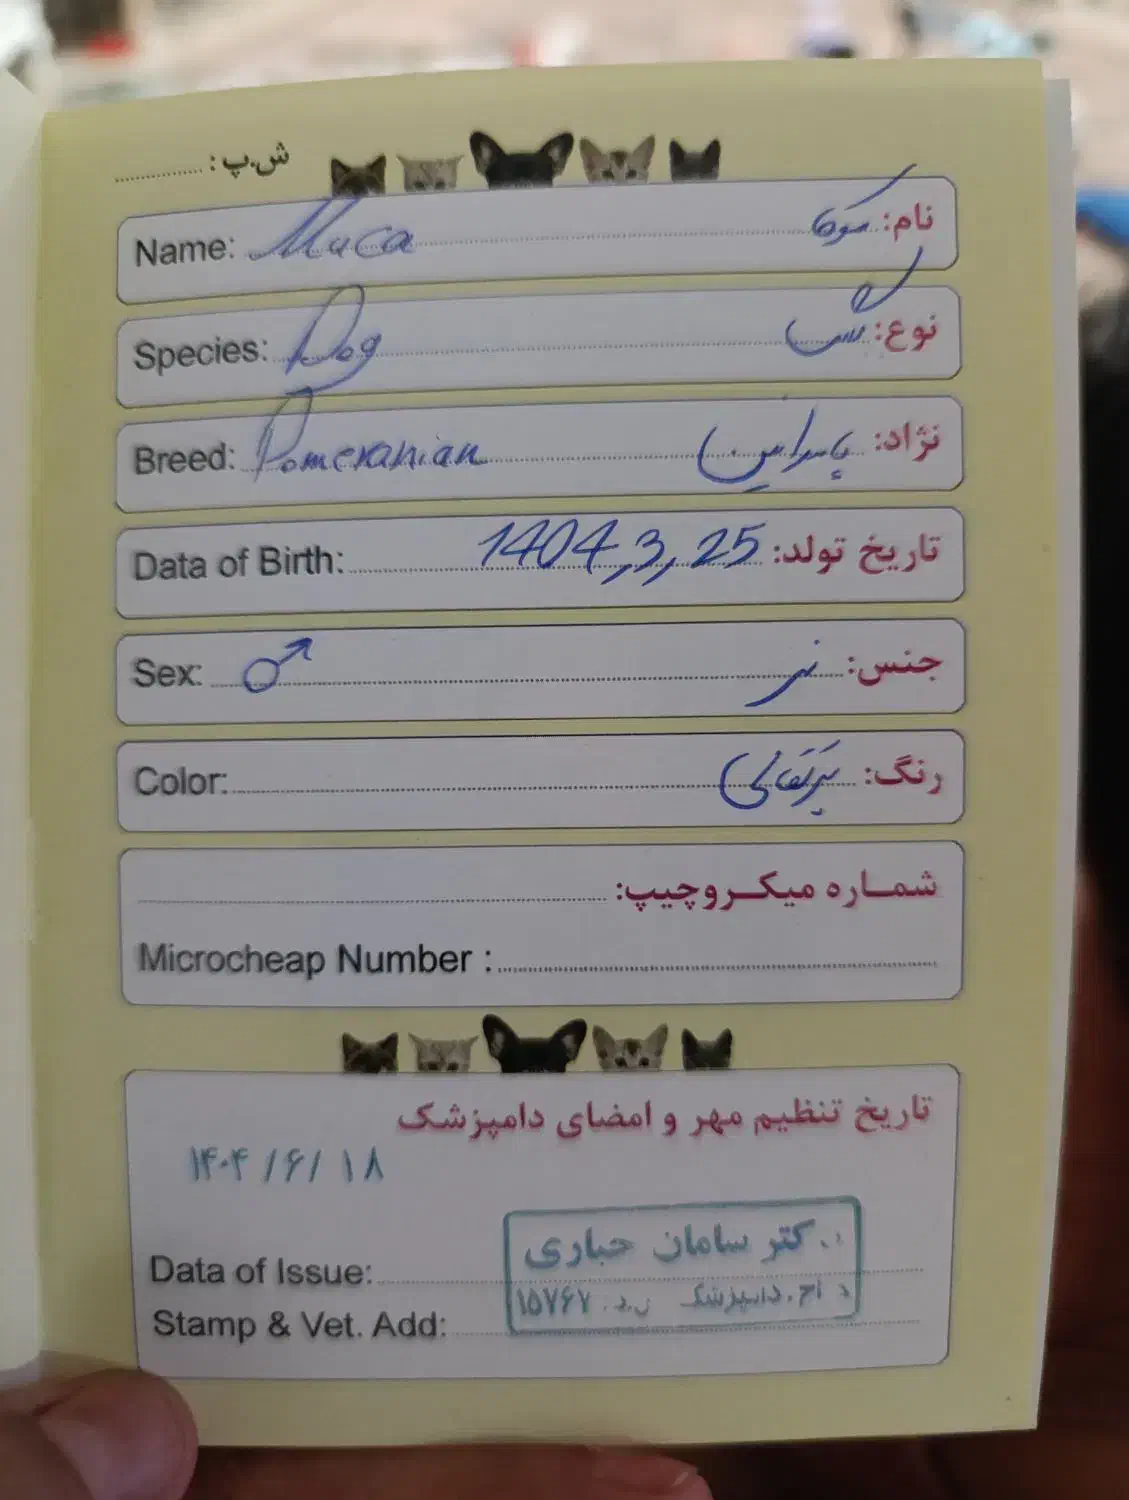 ش.پ :
Name: Muca نام: موكا
Species: Dog نوع: سگ
Breed: Pomeranian نژاد:
Data of Birth: 1404,3,25 تاریخ تولد:
Sex: ♂ نر جنس:
Color: پرتقالی رنگ:
شماره میکروچیپ:
Microcheap Number :
تاریخ تنظیم مهر و امضای دامپزشک
۱۴۰۴/۶/۱۸
دکتر سامان جباری
Data of Issue:
دامپزشک ن.د. ۱۵۷۶۷
Stamp & Vet. Add: